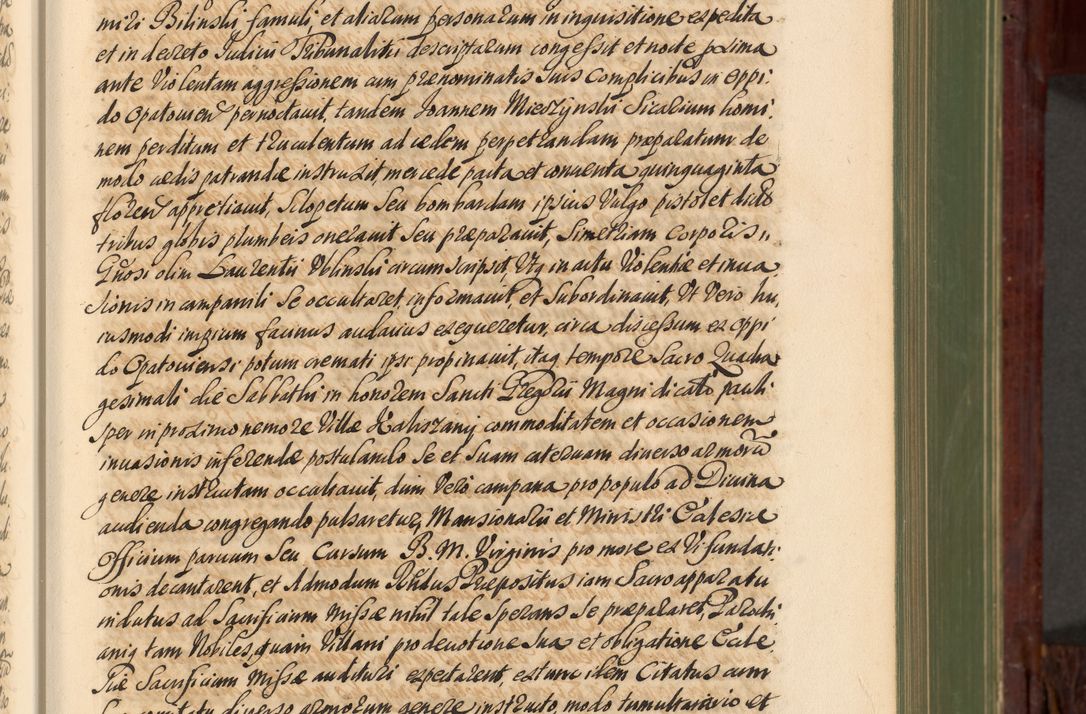 miri Bilinski famuli, et aliarum personarum in inquisitione expedita
et in decreto Judicii Tribunalitii descriptarum congessit et nocte proxima
ante Violentam aggressionem cum prænominatis suis Complicibus in oppi:
do Opatovien pernoctavit, tandem Joannem Mieszynski Sicarium homi:
nem perditum et truculentum ad cædem perpetrandam præparatum de
modo cædis patrandæ instruxit, mercede pacta et conventa quinquaginta
floren appretiavit, Sclopetum seu bombardam ipsius Vulgo pistolet dicto
tribus globis plumbeis oneravit seu præparavit, Simetriam Corporis
Gnosi olim Laurentii Oblinski circumscripsit, Utq in actu Violentiæ et inva
sionis in campanili se occultaret, informavit, et Subordinavit, Ut Vero hu,
iusmodi impium facinus audacius exequeretur, circa discessum ex oppi
do Opatoviensi potum cremati ipsi propinavit, itaq tempore Sacro Quadra
gesimali die Sabbathi in honorem Sancti Gregorii Magni dicato pauli
sper in proximo nemore Villæ Kaliszany commoditatem et occasionem
invasionis inferendæ postulando se et Suam catervam diverso armorum
genere instructam occultavit, dum Vero campana pro populo ad Divina
audienda congregando pulsaretur, Mansionarii et Ministri Ecclesiæ
Officium parvum seu Cursum B. M. Virginis pro more ex Vi fundati
onis decantarent, et Admodum Rndus Præpositus iam Sacro apparatu
indutus ad Sacrificium Missæ nihil tale Sperans se præpararet, Parochi
aniq tam Nobiles, quam Villani pro devotione Sua et obligatione Eccle
siæ Sacrificium Missæ audituri expectarent, extunc idem Citatus cum
diverso armorum genere instructo, modo tumultuario et